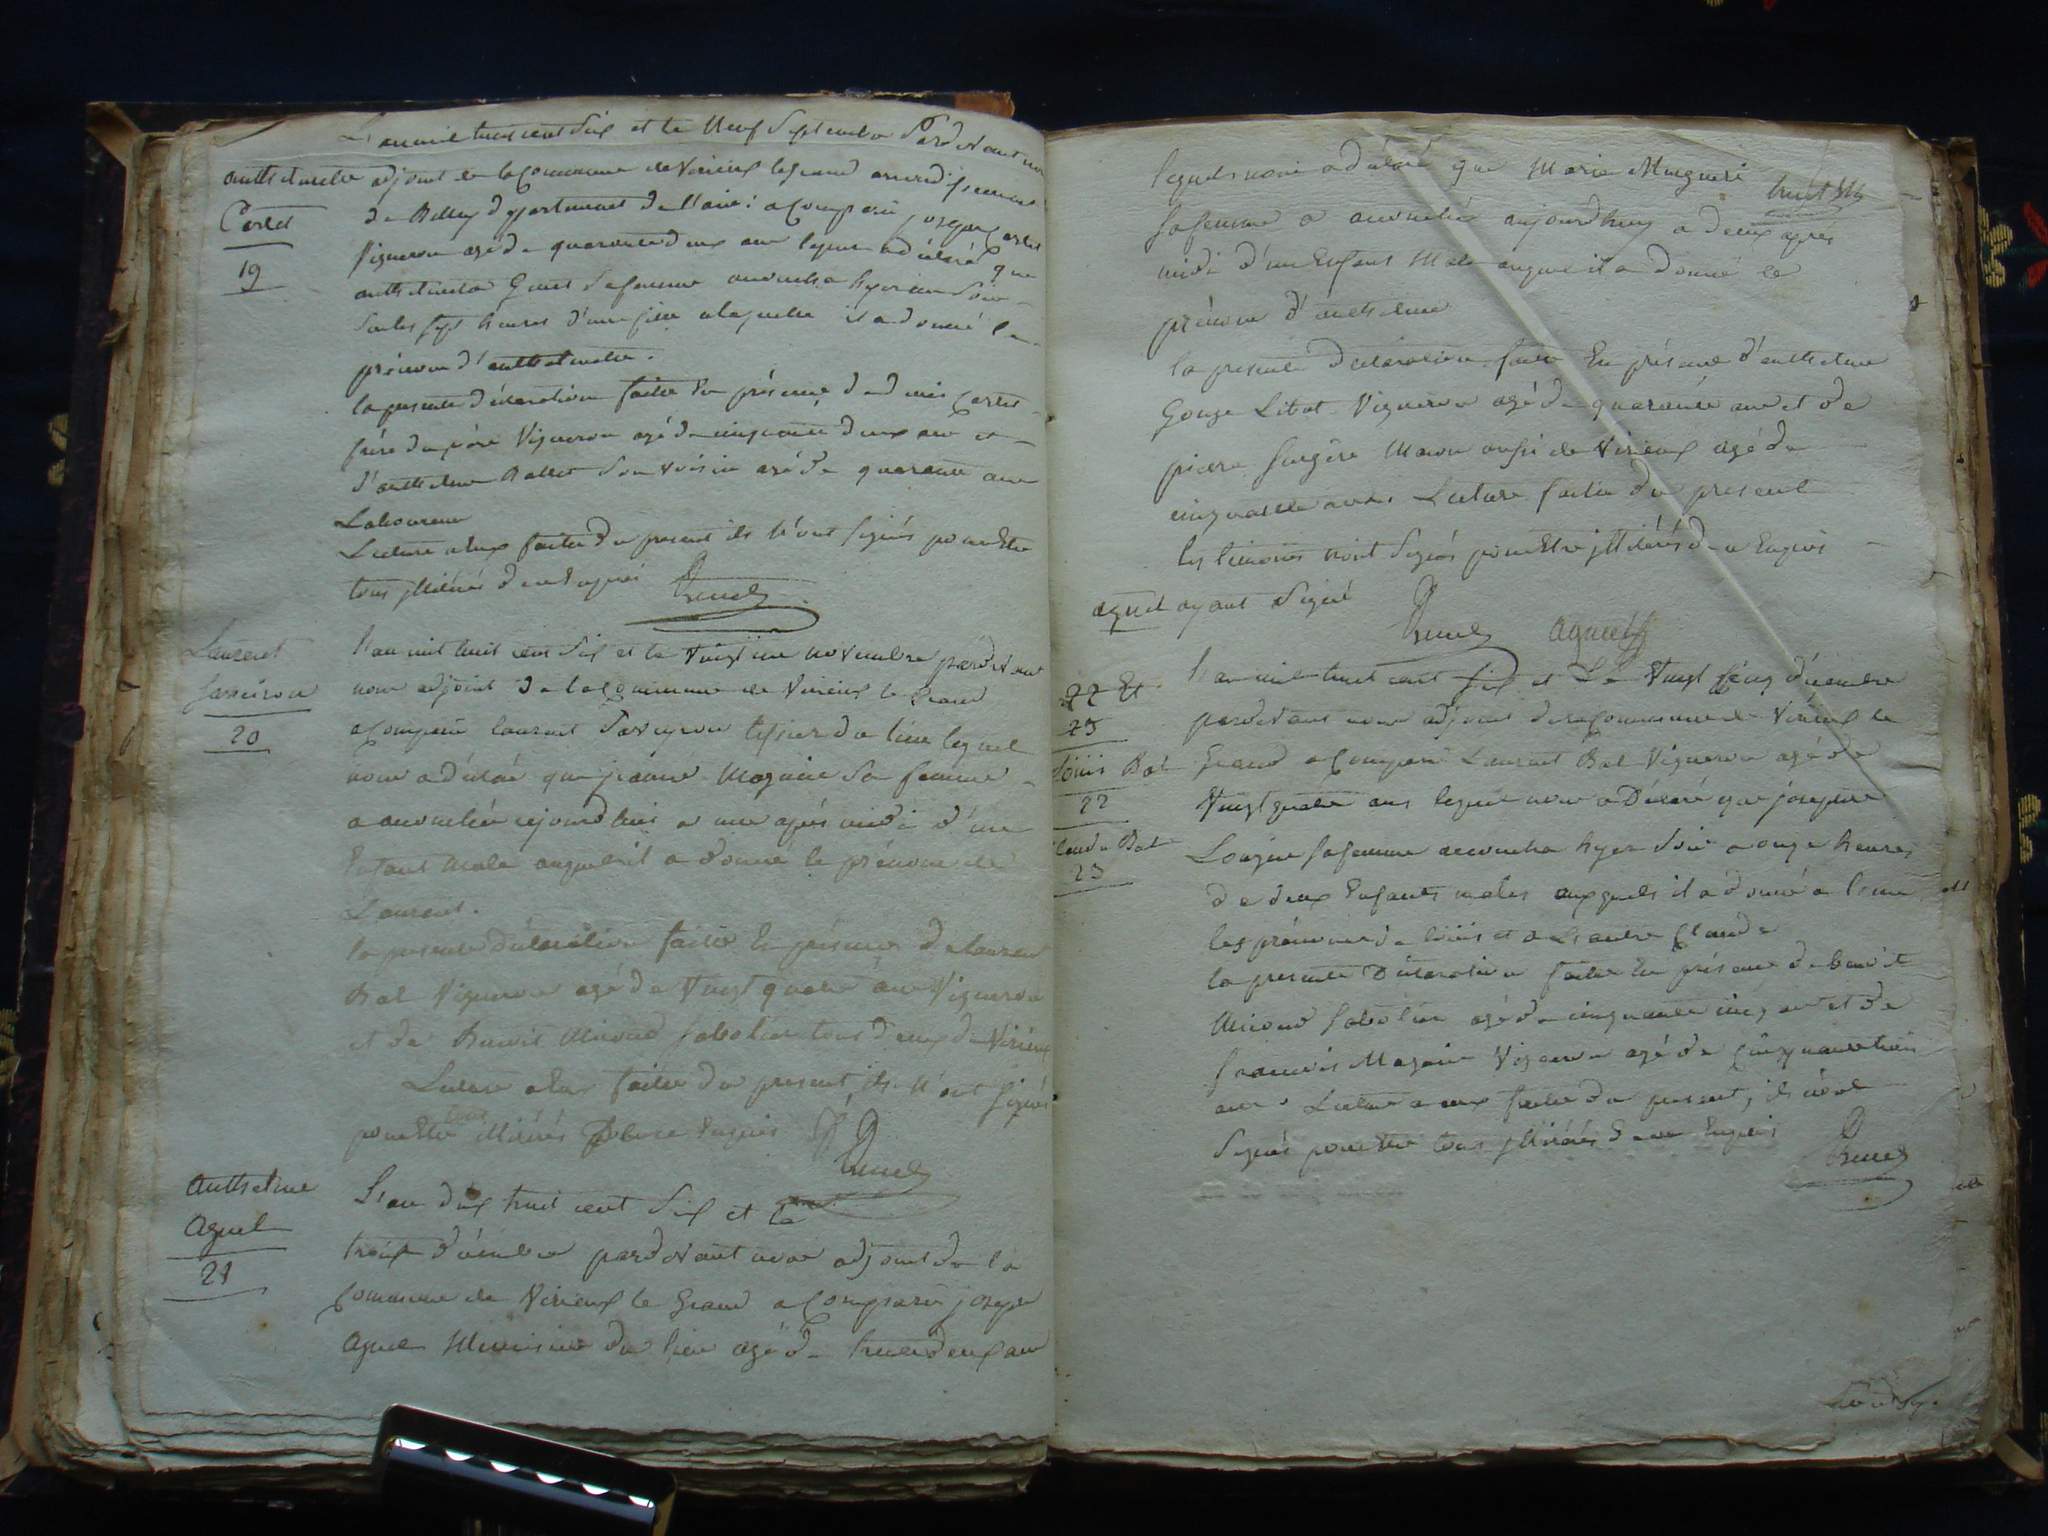 L'an mil huit cent Six et le Neuf Septembre Pardevant nous
anthelmette adjoint de la Commune de Virieux le grand arrondissement
Cortet
de Belley département de l'ain : a Comparu joseph Cortet
19
Vigneron agé de quarante deux ans lequel a déclaré que
anthelmette sa femme accoucha hyer au Soir
Sur les Sept heures d'une fille a laquelle il a donné le
prénom d'anthelmette.
la presente déclaration faitte En présence de Cortet
frère du père Vigneron agé de cinquante deux ans et
d'anthelme Ballet Son Voisin agé de quarante ans
Laboureur
Lecture a Eux faitte du present ils N'ont Signés pour Etre
tous illitérés de ce Enquis
Laurent
L'an mil huit cent Six et le Vingt un novembre pardevant
Saveiron
nous adjoint de la Commune de Virieux le Grand
20
a Comparu laurent Saveyron tessier du lieu lequel
nous a déclaré que jeanne Magnin Sa femme
a accouchée aujourdhui a une après midi d'un
Enfant Male auquel il a donné le prénom de
Laurent.
la presente déclaration faitte En présence de laurent
Bal Vigneron agé de Vingt quatre ans Vigneron
et de Benoit Sabotier tous deux de Virieux
Lecture a Eux faitte du present, ils N'ont Signés
pour Etre tous illitérés de ce Enquis
anthelme
L'an dix huit cent Six et le
Aguel
trois décembre pardevant nous adjoint de la
21
Commune de Virieux le Grand a Comparu joseph
Aguel Menuisier du lieu agé de trente deux ans
lequel nous a déclaré que Marie
Sa femme a accouchée aujourdhuy a deux après
midi d'un Enfant Male auquel il a donné le
prénom d'anthelme
la presente déclaration faitte En présence d'anthelme
Vigneron agé de quarante ans et de
pierre Maçon aussi de Virieux agé de
cinquante ans Lecture faitte du present
les témoins n'ont Signés pour Etre illitérés de ce Enquis
aguel ayant Signé
Aguel
22 Et
L'an mil huit cent Six et Le Vingt Cinq décembre
23
pardevant nous adjoint de la Commune de Virieux le
Louis Bal
Grand a Comparu Laurent Bal Vigneron agé de
22
Vingt quatre ans lequel nous a Déclaré que josephte
Claude Bal
sa femme accoucha hyer Soir a onze heures
23
de deux Enfants males auxquels il a donné a l'un
les prénoms de Louis et a L'autre Claude
la presente Déclaration faitte En présence de benoit
Sabotier agé de cinquante cinq ans et de
francois Magnin Vigneron agé de Cinquante trois
ans. Lecture a eux faitte du present, ils n'ont
Signés pour Etre tous illitérés de ce Enquis